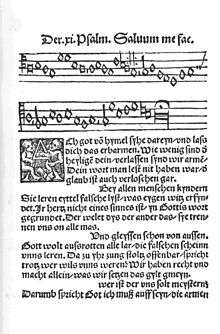 Der.xi.Psalm. Saluum me fac.
Ach got vō hymel syhe dareyn/ vnd laß
dich das erbarmen. Wie wenig sind ď
heyligē dein/ verlassen synd wir armē.
Dein wort man lest nit haben war/ ď
glaub ist auch verloschen gar.
Bey allen menschen kyndern
Sie leren eyttel falsche lyst/ was eygen witz erfyn⸗
det. Jr hertz nicht eines sinnes ist/ yn Gottis wort
gegrundet. Der welet dys der ander das/ sie tren⸗
nen vns on alle mas.
Vnd gleyssen schon von aussen.
Gott wolt ausrotten alle lar/ die falschen scheinn
vnns leren. Da zu yhr zung stoltz offenbar/ spricht
trotz wer wils vnns weren? Wir haben recht vnnd
macht allein/ was wir setzen das gylt gmeyn.
wer ist der vns solt meystern?
Darumb spricht Got ich muß auff seyn/ die armen